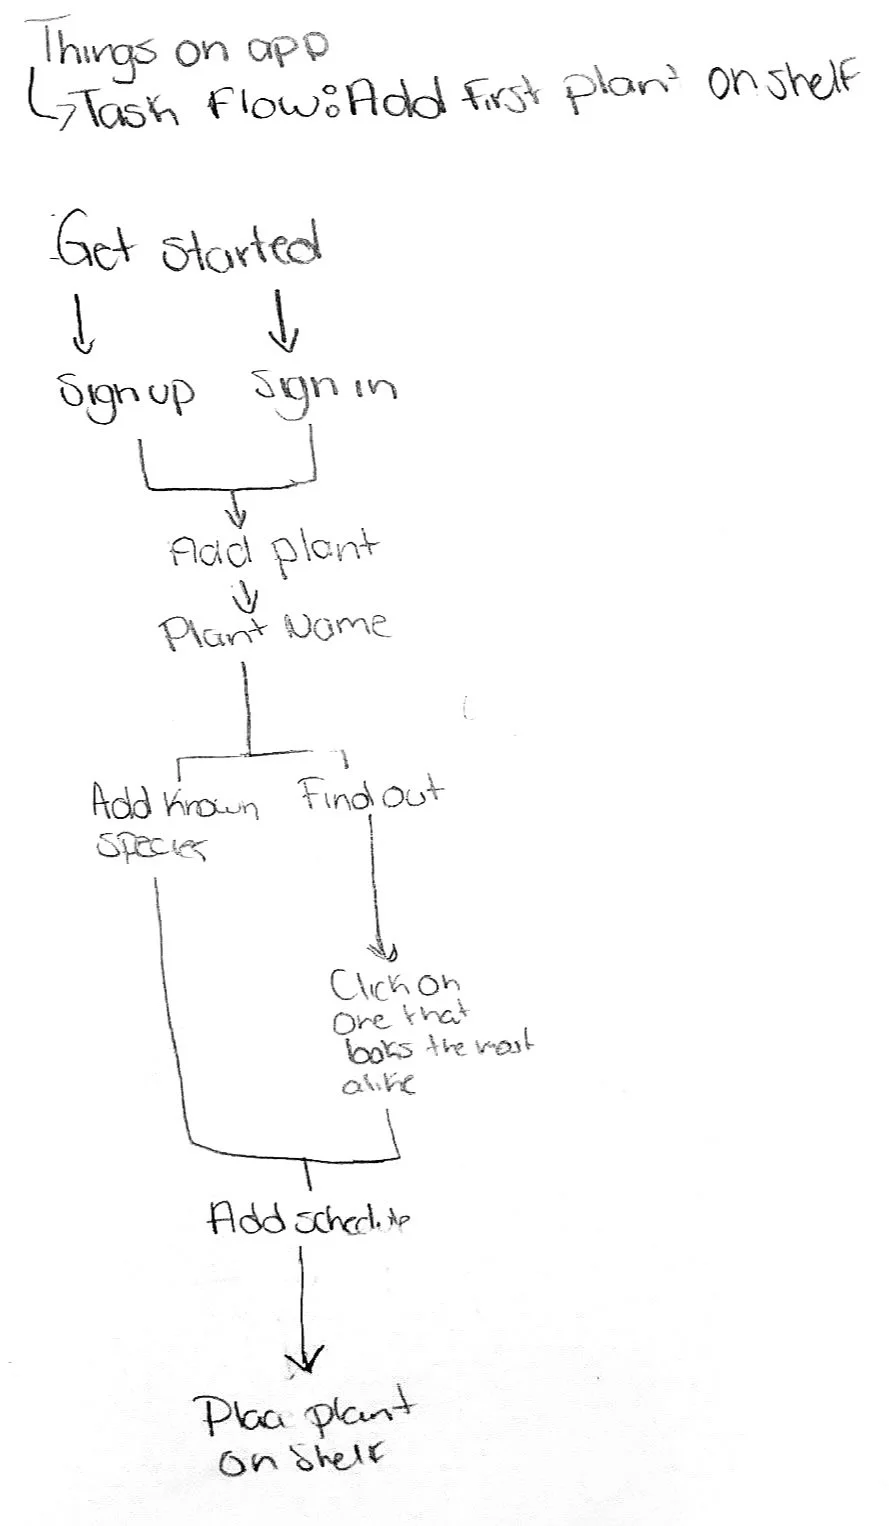 Things on app
Task Flow: Add first plant on shelf
Get started
Sign up Sign in
Add plant
Plant Name
Add known Find out
species
Click on
one that
looks the most
alike
Add
plant
on shelf